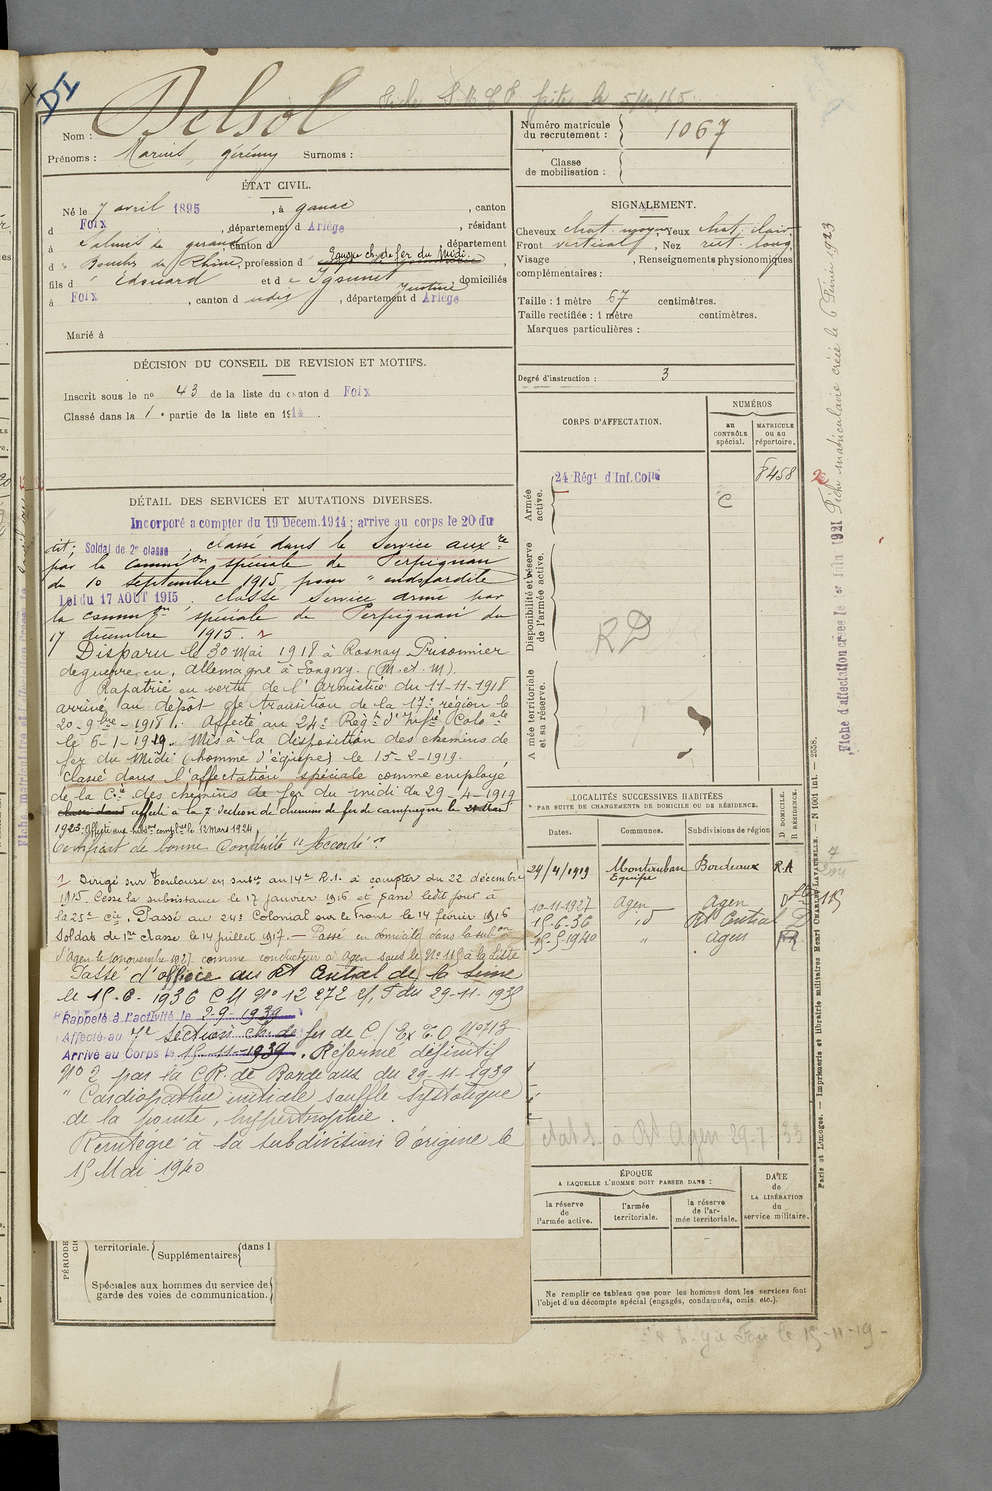 DI
Delsol
Nom :
Prénoms : Marius, gérémy Surnoms :
Numéro matricule du recrutement : 1067
Classe de mobilisation :
ÉTAT CIVIL.
Né le 7 avril 1895, à ganac, canton
d Foix, département d Ariège, résidant
à Salins de giraud, canton d département
d Bouches du Rhône, profession d Equipe ch. de fer du Midi,
fils d Edouard et d domiciliés
à Foix, canton d udit, département d Ariège
Marié à
SIGNALEMENT.
Cheveux chat. moyen, Yeux chat. clair
Front vertical, Nez rect. long
Visage , Renseignements physionomiques
complémentaires :
Taille : 1 mètre 67 centimètres.
Taille rectifiée : 1 mètre centimètres.
Marques particulières :
Degré d'instruction : 3
DÉCISION DU CONSEIL DE REVISION ET MOTIFS.
Inscrit sous le no 43 de la liste du canton d Foix
Classé dans la 1e partie de la liste en 1914.
CORPS D'AFFECTATION.
NUMÉROS
au CONTRÔLE spécial.
MATRICULE ou au répertoire.
Armée active.
24 Régt d'Inf. Colle
C
8458
Disponibilité et réserve de l'armée active.
RD
Armée territoriale et sa réserve.
DÉTAIL DES SERVICES ET MUTATIONS DIVERSES.
Incorporé a compter du 19 Décem. 1914 ; arrive au corps le 20 du
dit, Soldat de 2e classe. classé dans le Service auxre
par la Commion spéciale de Perpignan
du 10 septembre 1915 pour
Loi du 17 AOUT 1915. classé Service armé par
la commion spéciale de Perpignan du
17 décembre 1915.
Disparu le 30 Mai 1918 à Rosnay Prisonnier
de guerre en Allemagne à Longwy. (M. et M).
Rapatrié en vertu de l'Armistice du 11-11-1918
arrivé au dépôt de transition de la 17e région le
20-9bre-1918. Affecté au 24e Regt d'Infie Colole
le 6-1-1919. Mis à la disposition des chemins de
fer du Midi (homme d'équipe) le 15-2-1919.
Classé dans l'affectation spéciale comme employé
de la Cie des chemins de fer du midi du 29-4-1919
affecté à la 7e Section de chemins de fer de campagne le
1923. Affecté aux subon complre le 12 mars 1924
Certificat de bonne Conduite "Accordé"
1 Dirigé sur Toulouse en subce au 14e R.I. à compter du 22 décembre
1915. Cesse la subsistance le 17 janvier 1916 et passé ledit jour à
la 25e cie. Passé au 24e Colonial sur le front le 14 février 1916
Soldat de 1re classe le 14 juillet 1917. — Passé en domicile dans la subon
d'Agen le 10 novembre 1927 comme conducteur à Agen sous le No 115 à la liste
Passé d'office au Rt Central de la Seine
le 15-6-1936 C M No 12 272 du 29-11-1935
Rappelé à l'activité le 2-9-1939
Affecté au 7e Section ch. de fer de C.
Arrivé au Corps le 15-11-1939. Réformé définitif
No 2 par la C.R. de Bordeaux du 29-11-1939
"Cardiopathie mitrale souffle systolique
de la pointe, hypertrophie.
Réintégré à la subdivision d'origine le
15 Mai 1940
LOCALITÉS SUCCESSIVES HABITÉES
PAR SUITE DE CHANGEMENTS DE DOMICILE OU DE RÉSIDENCE.
Dates. Communes. Subdivisions de région
D DOMICILE.
R RÉSIDENCE.
24/4/1919 Montauban Equipe Bordeaux R.A
10-11-1927 Agen Agen D
15-6-36 id Rt Central D
15-5-1940 " Agen
Rt Agen 29-7-33
ÉPOQUE
A LAQUELLE L'HOMME DOIT PASSER DANS :
la réserve de l'armée active.
l'armée territoriale.
la réserve de l'armée territoriale.
DATE de LA LIBÉRATION du service militaire.
Ne remplir ce tableau que pour les hommes dont les services font
l'objet d'un décompte spécial (engagés, condamnés, omis, etc.).
territoriale. Supplémentaires dans l
Spéciales aux hommes du service de
garde des voies de communication.
Fiche matriculaire créée le 6 Février 1923
Fiche d'affectation créée le 1er Juin 1921
Paris et Limoges. — Imprimerie et librairie militaires Henri CHARLES-LAVAUZELLE. — N 1001 int. — 2558.